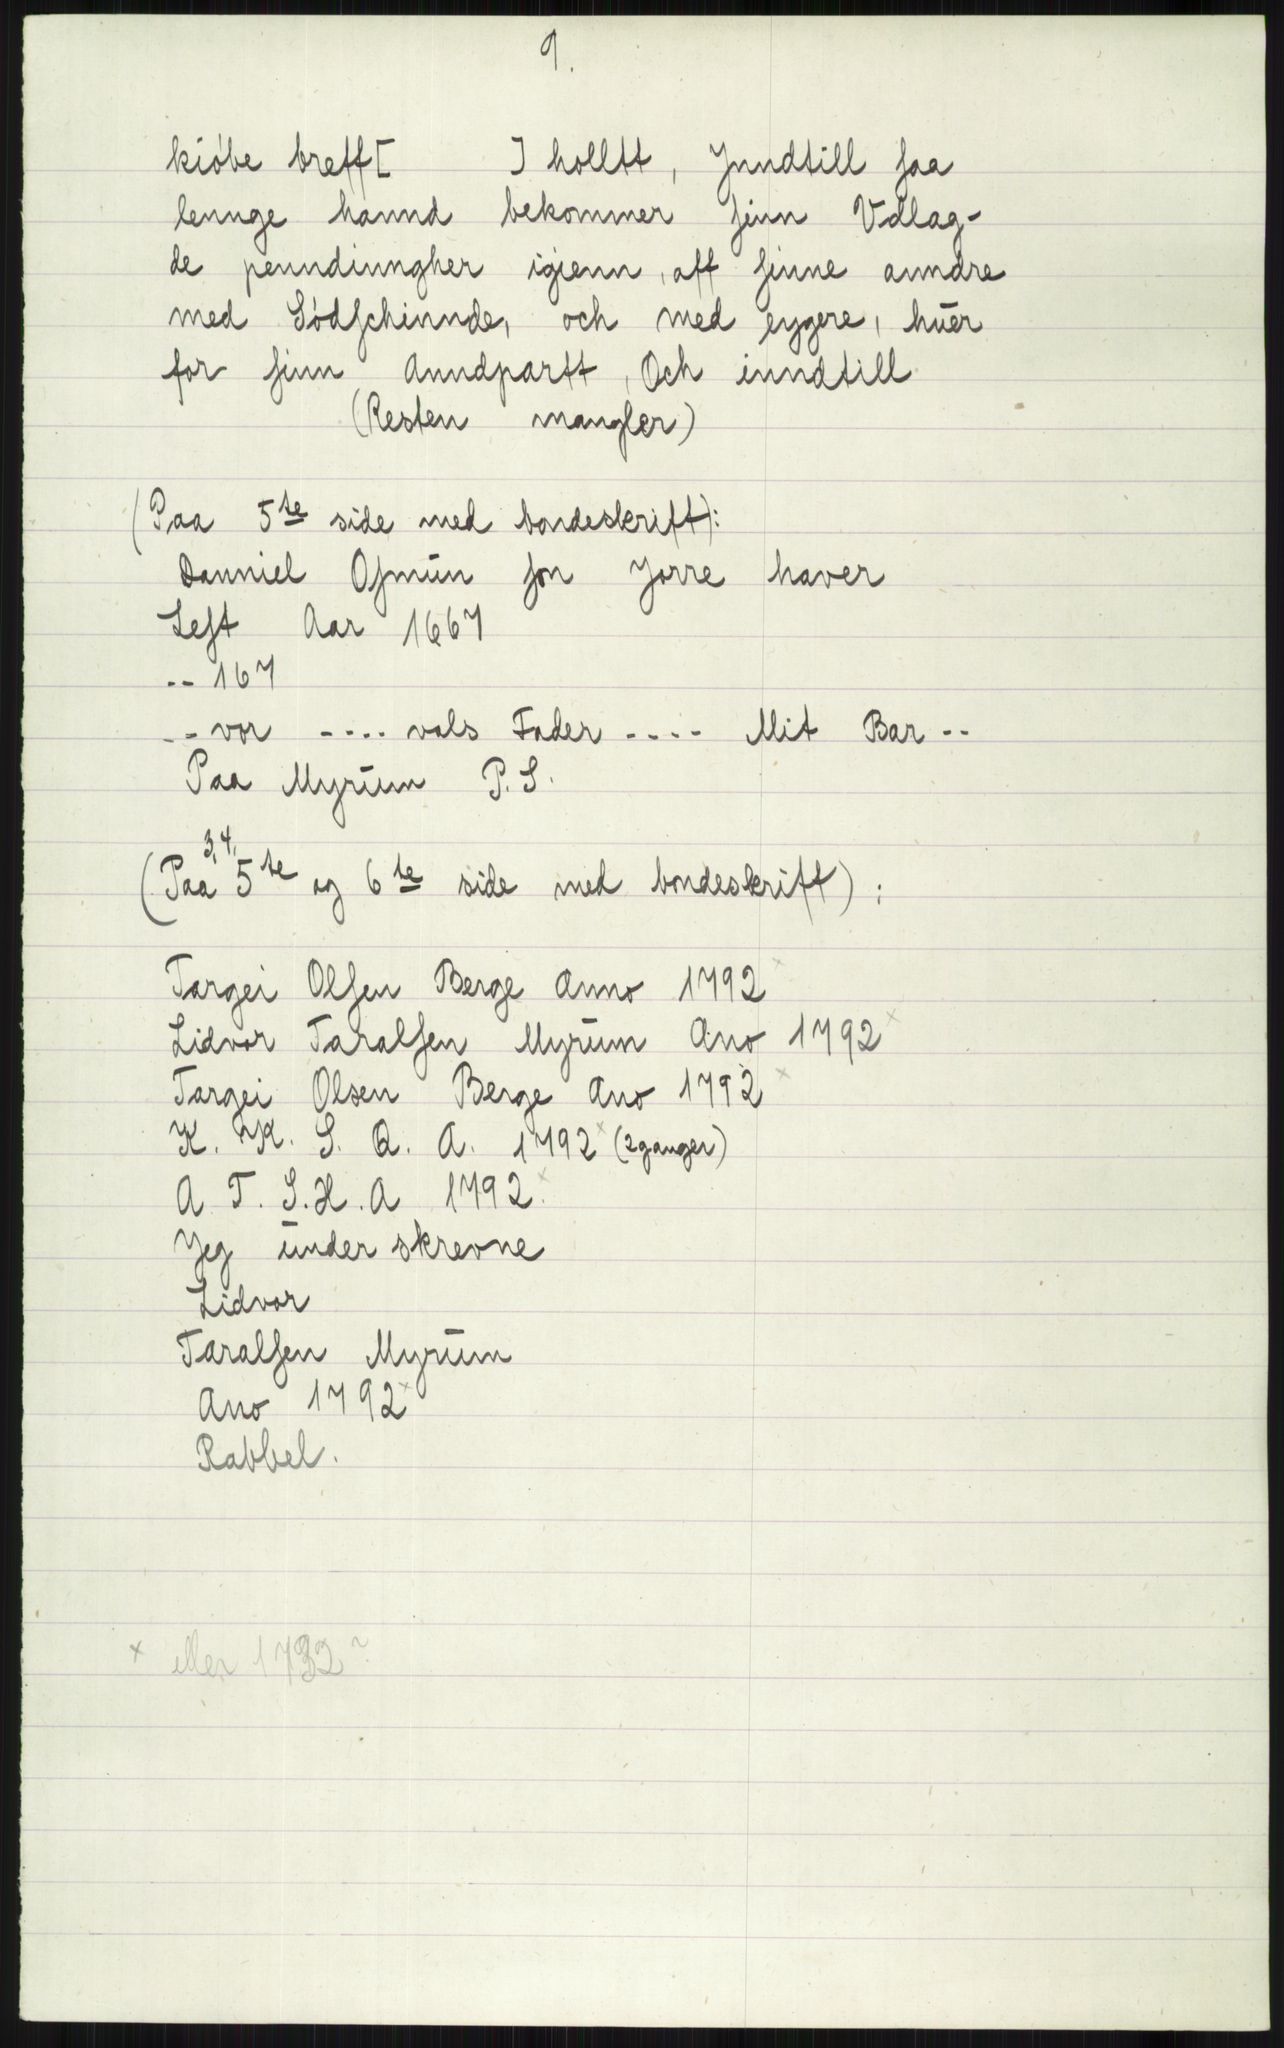 9.
kiøbe breff [ ] holltt, Jnndtill saa
lennge hannd bekommer sinn Vdlag-
de penndinngher igienn, aff sinne anndre
med Sødschinnde, och med eygere, huer
for sinn Anndpartt, Och inndtill
(Resten mangler)
(Paa 5te side med bondeskrift):
Danniel Osmun son Jorre haver
Lest Aar 1667
-- 167
-- vor .... vals Fader .... Mit Bar --
Paa Myrum P. S.
3, 4,
(Paa 5te og 6te side med bondeskrift):
Targei Olsen Berge Anno 1792 x
Lidvor Taralsen Myrum Ano 1792 x
Targei Olsen Berge Ano 1792 x
K. K. S. Q. A. 1792 x (2 ganger)
A T. S. H. A 1792 x
Jeg under skrevne
Lidvor
Taralsen Myrum
Ano 1792 x
Rabbel.
x eller 1732?